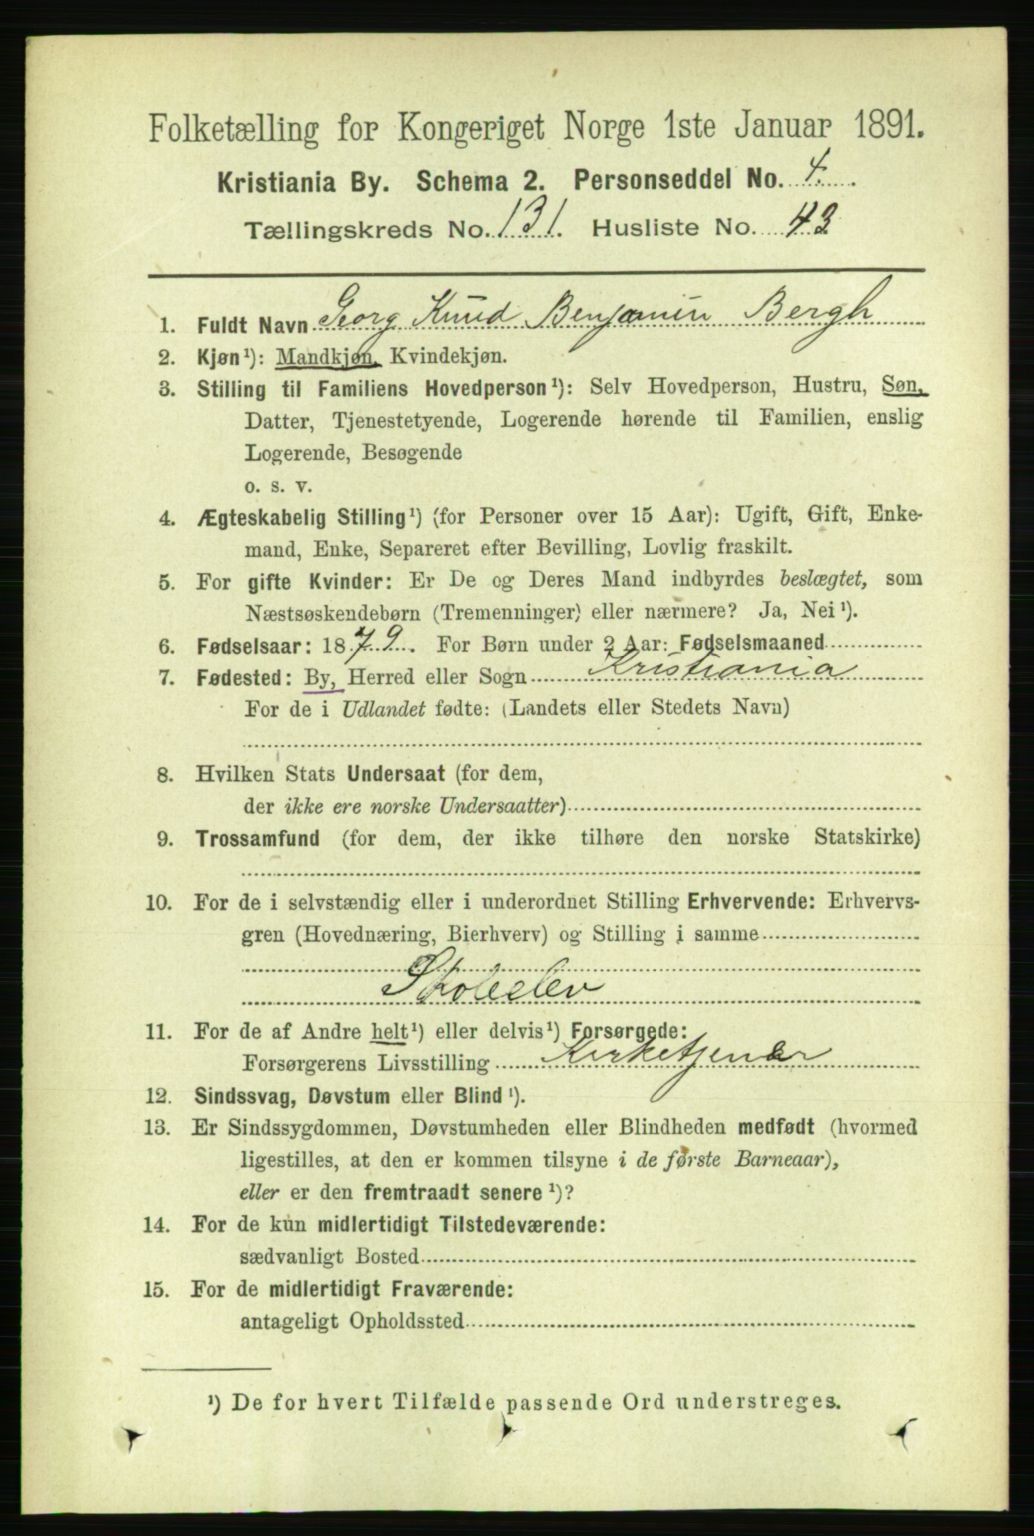 Folketælling for Kongeriget Norge 1ste Januar 1891.
Kristiania By. Schema 2. Personseddel No. 4.
Tællingskreds No. 131. Husliste No. 43
1. Fuldt Navn Georg Knud Benjamin Bergh
2. Kjøn¹): Mandkjøn, Kvindekjøn.
3. Stilling til Familiens Hovedperson¹): Selv Hovedperson, Hustru, Søn,
Datter, Tjenestetyende, Logerende hørende til Familien, enslig
Logerende, Besøgende
o. s. v.
4. Ægteskabelig Stilling¹) (for Personer over 15 Aar): Ugift, Gift, Enke-
mand, Enke, Separeret efter Bevilling, Lovlig fraskilt.
5. For gifte Kvinder: Er De og Deres Mand indbyrdes beslægtet, som
Næstsøskendebørn (Tremenninger) eller nærmere? Ja, Nei¹).
6. Fødselsaar: 1879. For Børn under 2 Aar: Fødselsmaaned
7. Fødested: By, Herred eller Sogn Kristiania
For de i Udlandet fødte: (Landets eller Stedets Navn)
8. Hvilken Stats Undersaat (for dem,
der ikke ere norske Undersaatter)
9. Trossamfund (for dem, der ikke tilhøre den norske Statskirke)
10. For de i selvstændig eller i underordnet Stilling Erhvervende: Erhvervs-
gren (Hovednæring, Bierhverv) og Stilling i samme
Skoleelev
11. For de af Andre helt¹) eller delvis¹) Forsørgede:
Forsørgerens Livsstilling Kirketjener
12. Sindssvag, Døvstum eller Blind¹).
13. Er Sindssygdommen, Døvstumheden eller Blindheden medfødt (hvormed
ligestilles, at den er kommen tilsyne i de første Barneaar),
eller er den fremtraadt senere¹)?
14. For de kun midlertidigt Tilstedeværende:
sædvanligt Bosted
15. For de midlertidigt Fraværende:
antageligt Opholdssted
¹) De for hvert Tilfælde passende Ord understreges.